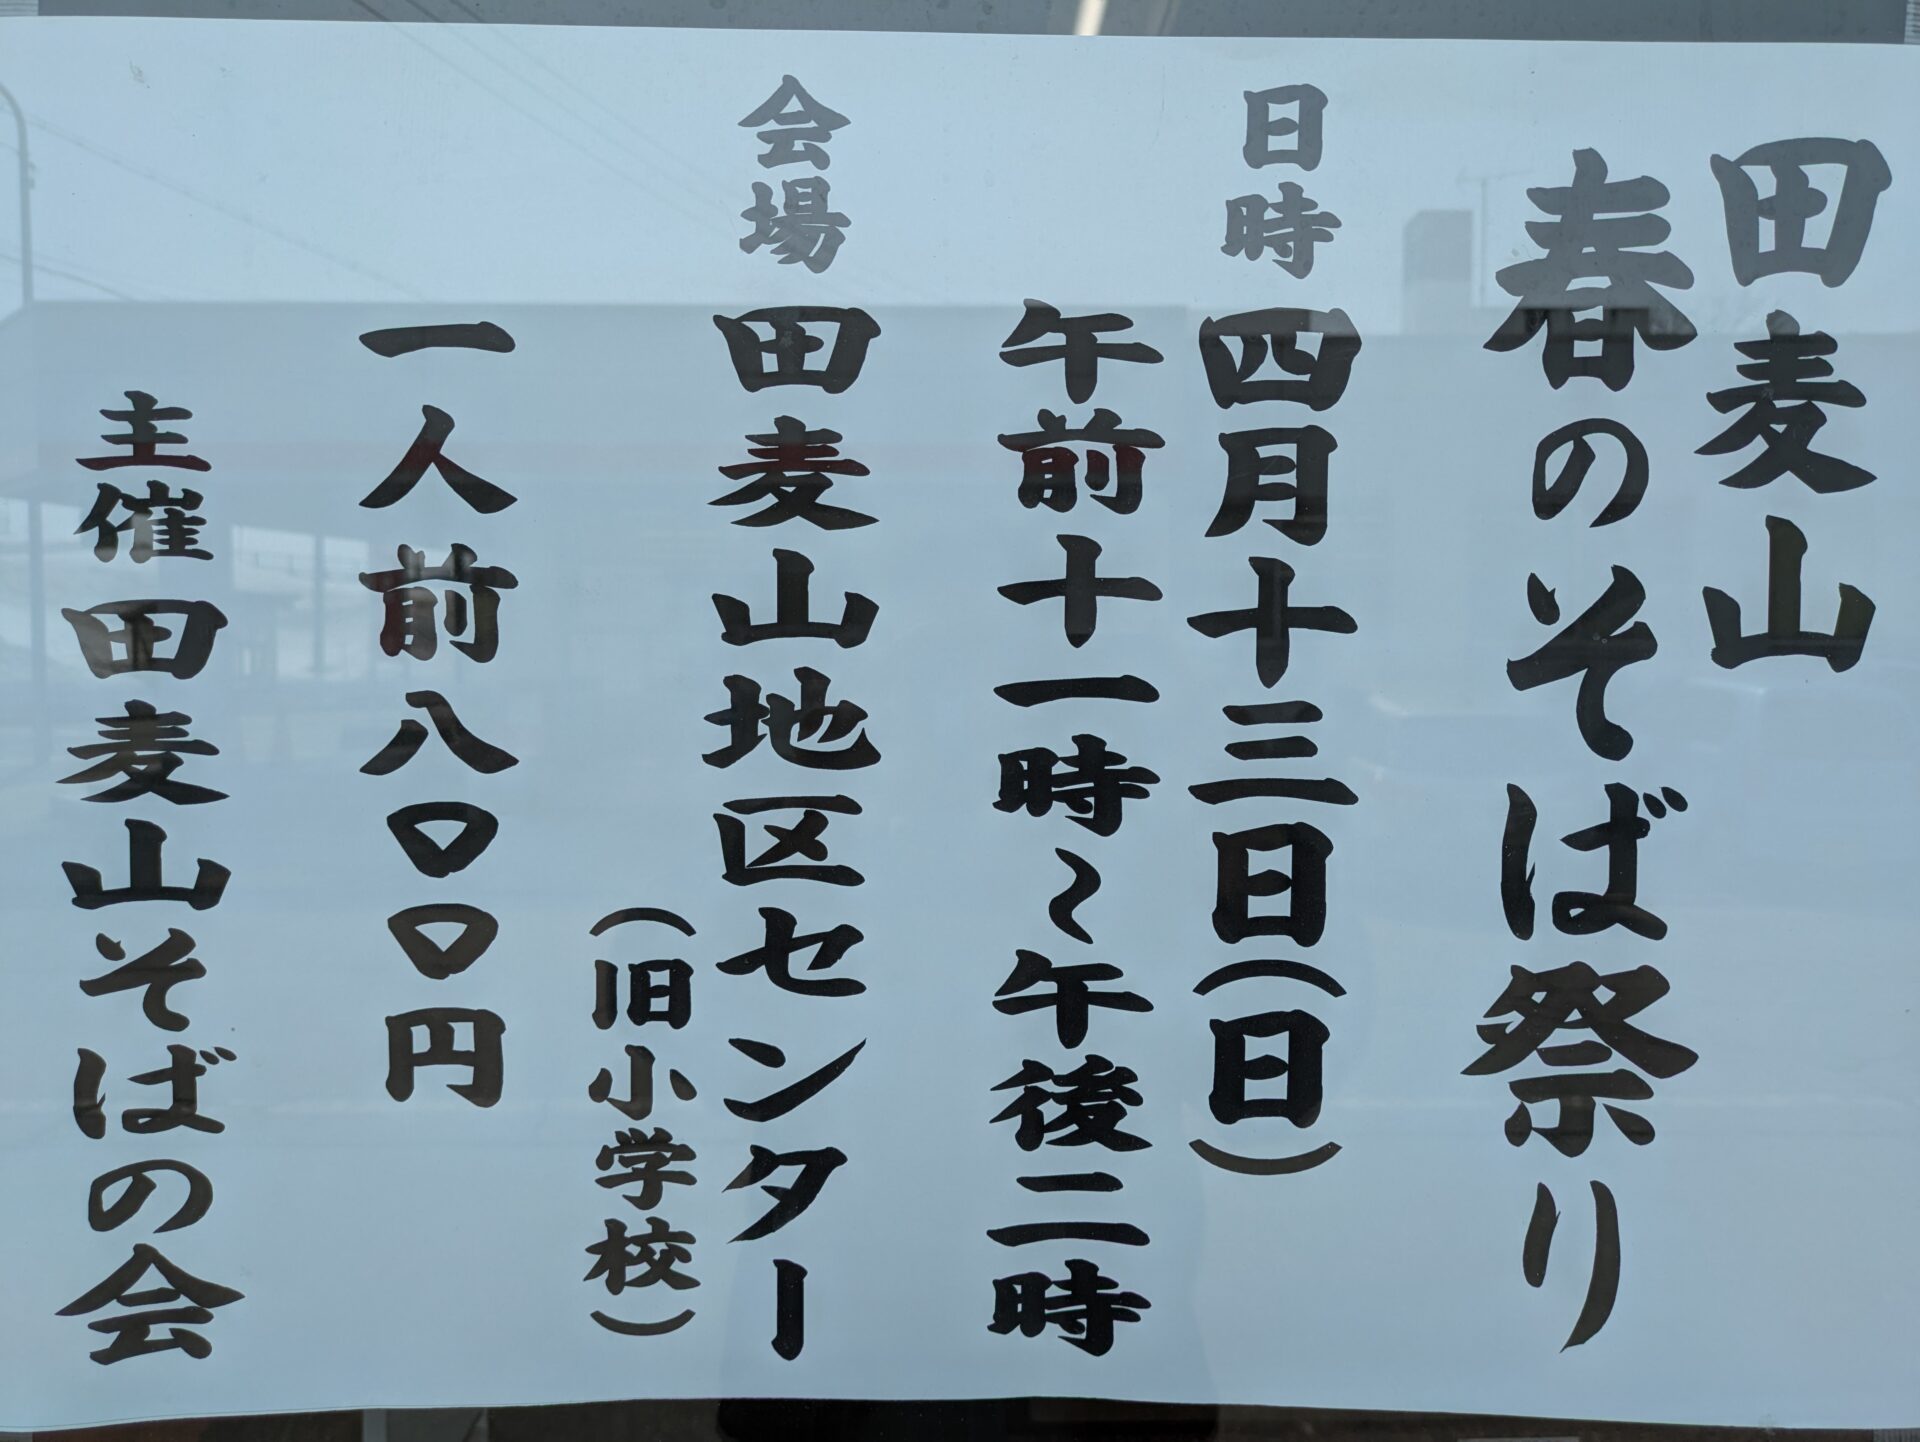 田麦山
春のそば祭り
日時 四月十三日(日)
午前十一時~午後二時
会場 田麦山地区センター
(旧小学校)
一人前八〇〇円
主催 田麦山そばの会